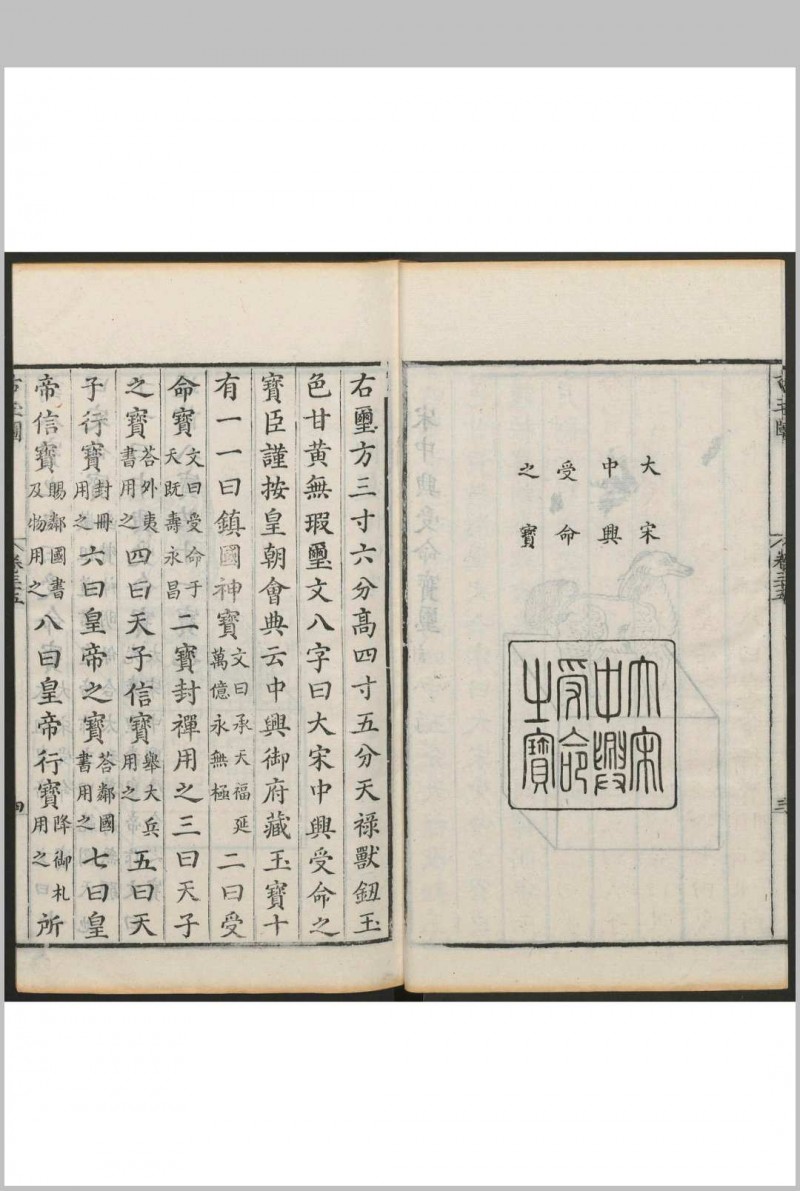 大宋
中興
受命
之寶
大宋
中興
受命
之寶
右璽方三寸六分高四寸五分天祿獸鈕玉
色甘黃無瑕璽文八字曰大宋中興受命之
寶臣謹按皇朝會典云中興御府藏玉寶十
有一一曰鎮國神寶文曰承天福延萬億永無極二曰受
命寶文曰受命于天既壽永昌二寶封禪用之三曰天子
之寶荅外夷書用之四曰天子信寶舉大兵用之五曰天
子行寶封冊用之六曰皇帝之寶荅鄰國書用之七曰皇
帝信寶賜鄰國書及物用之八曰皇帝行寶降御札用之所